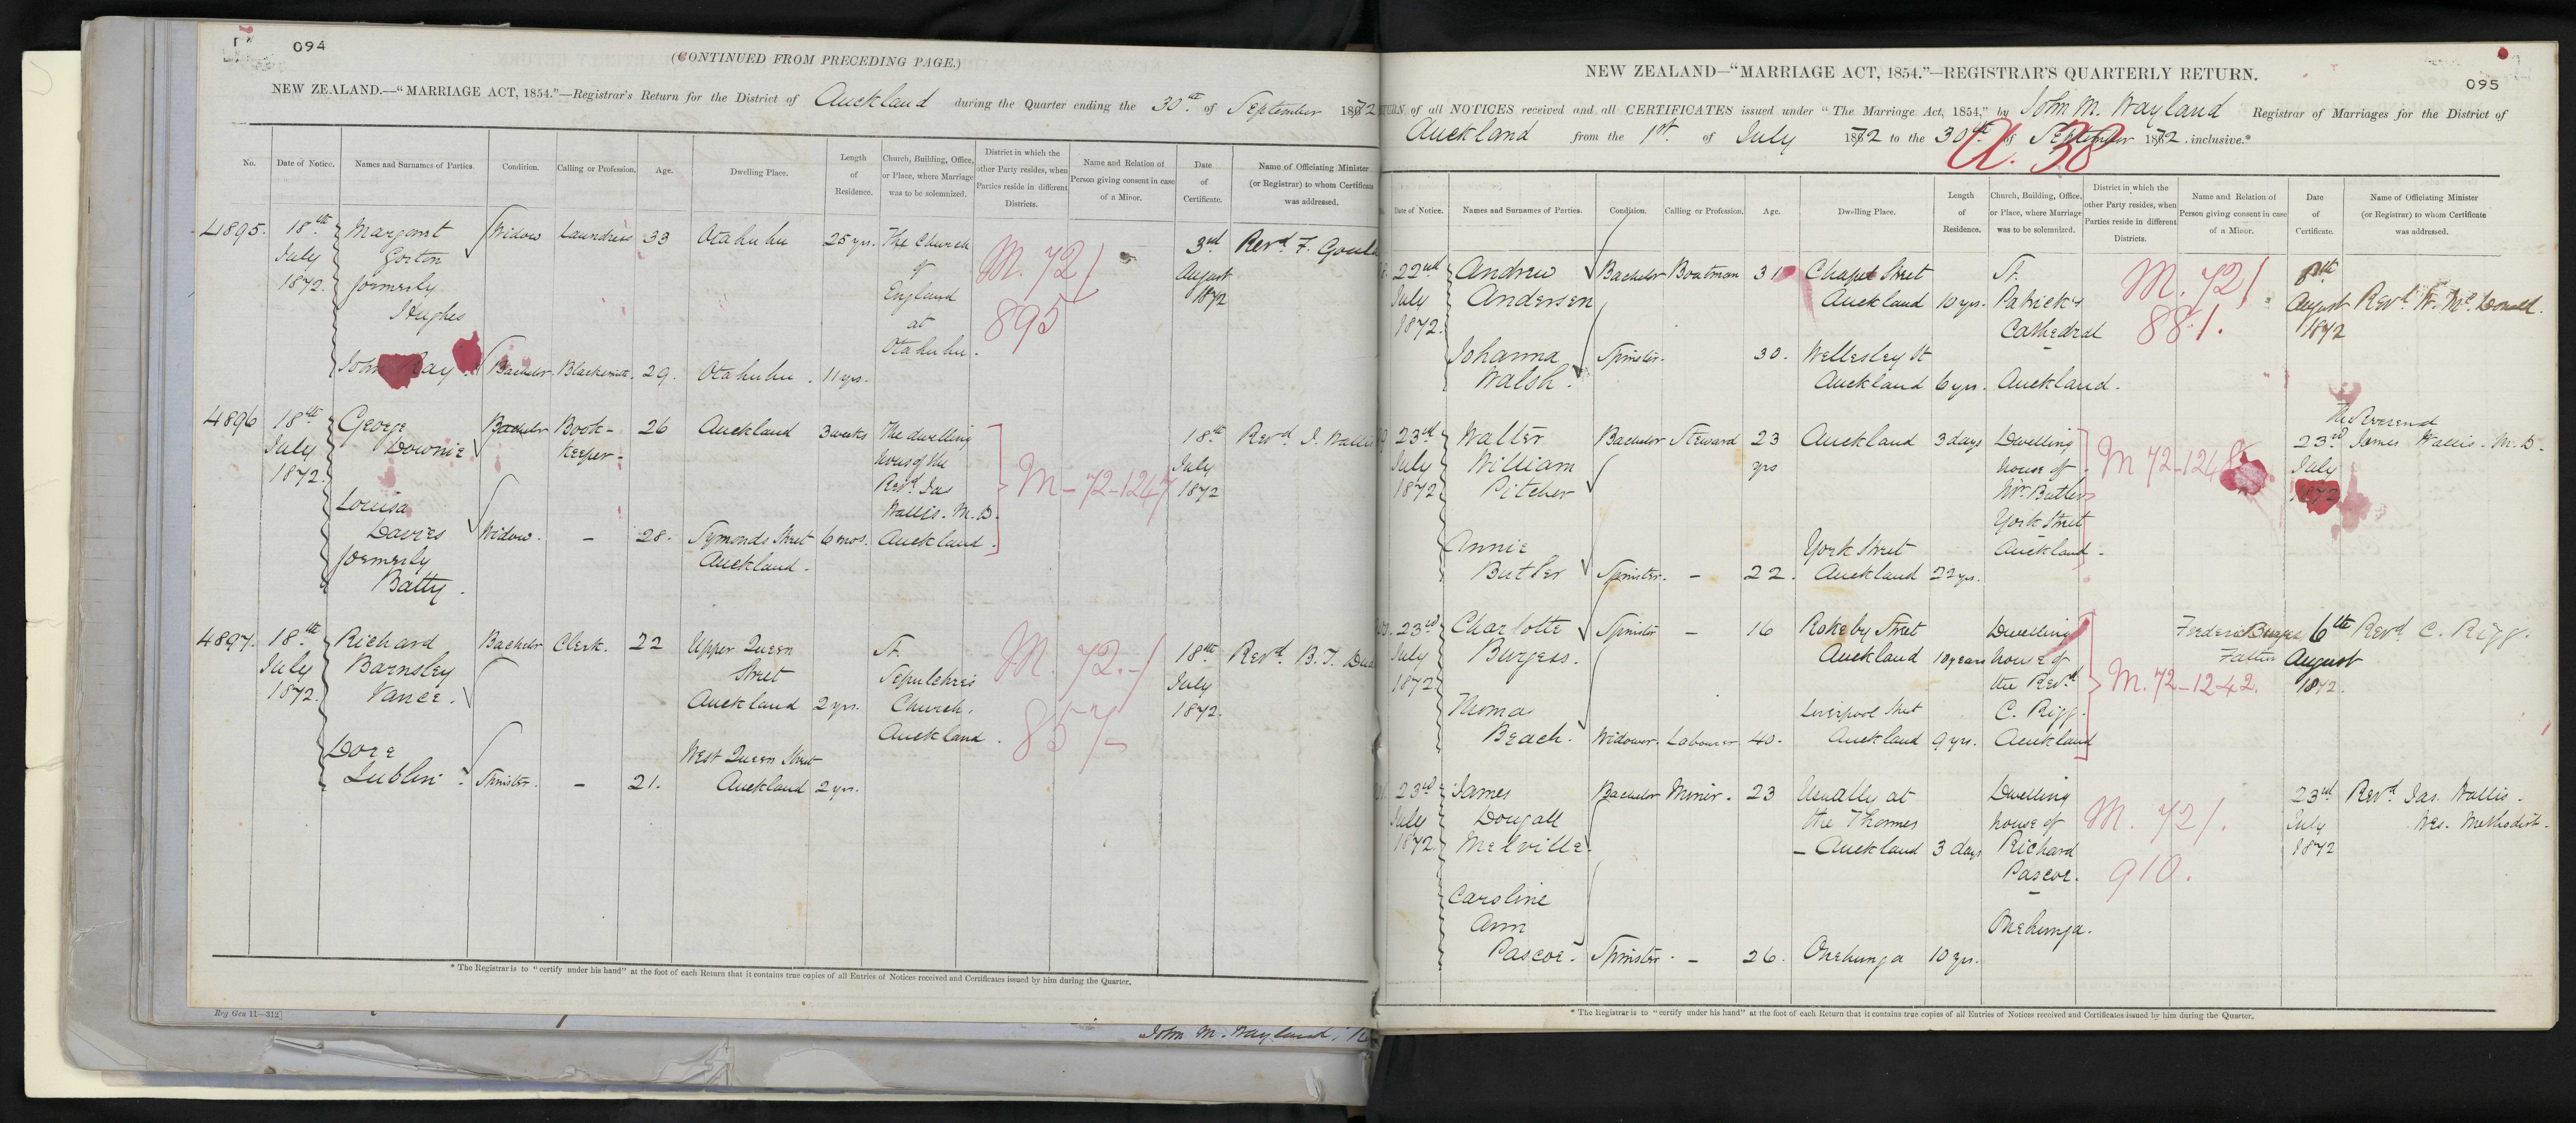 094
(CONTINUED FROM PRECEDING PAGE.)
NEW ZEALAND.—"MARRIAGE ACT, 1854."—Registrar's Return for the District of Auckland during the Quarter ending the 30th of September 1872
No. Date of Notice. Names and Surnames of Parties. Condition. Calling or Profession. Age. Dwelling Place. Length of Residence. Church, Building, Office, or Place, where Marriage was to be solemnized. District in which the other Party resides, when Parties reside in different Districts. Name and Relation of Person giving consent in case of a Minor. Date of Certificate. Name of Officiating Minister (or Registrar) to whom Certificate was addressed.
4895. 18th Margaret Widow Laundress 33 Otahuhu 25 yrs. The Church 3rd Revd F. Goul
July Gorton of M. 72/ August
1872. formerly England 1872
Hughes at 895
Otahuhu.
John Ray. Bachelor. Blacksmith. 29. Otahuhu. 11 yrs.
4896 18th George Bachelor Book- 26 Auckland 3 weeks The dwelling 18th Revd J. Wallis
July Downie keeper- house of the July
1872. Revd Jas M-72-1247 1872
Louisa Wallis. M.D.
Davies Widow. - 28. Symonds Street 6 mos. Auckland.
formerly Auckland.
Batty.
4897. 18th Richard Bachelor Clerk. 22 Upper Queen St. 18th Revd B. T. Du
July Barnsley Street Sepulchre's M. 72.-/ July
1872. Vance. Auckland 2 yrs. Church, 1872.
Auckland. 857
Dore West Queen Street
Lublin. Spinster. - 21. Auckland 2 yrs.
* The Registrar is to "certify under his hand" at the foot of each Return that it contains true copies of all Entries of Notices received and Certificates issued by him during the Quarter.
Reg Gen 11—312]
John M. Wayland,
NEW ZEALAND—"MARRIAGE ACT, 1854."—REGISTRAR'S QUARTERLY RETURN.
095
TURN of all NOTICES received and all CERTIFICATES issued under "The Marriage Act, 1854," by John M. Wayland Registrar of Marriages for the District of
Auckland from the 1st. of July 1872 to the 30th of September 1872. inclusive.*
38
Date of Notice. Names and Surnames of Parties. Condition. Calling or Profession. Age. Dwelling Place. Length of Residence. Church, Building, Office, or Place, where Marriage was to be solemnized. District in which the other Party resides, when Parties reside in different Districts. Name and Relation of Person giving consent in case of a Minor. Date of Certificate. Name of Officiating Minister (or Registrar) to whom Certificate was addressed.
22nd Andrew Bachelor Boatman 31 Chapel Street St. M. 72/ 8th
July Andersen Auckland 10 yrs. Patrick's August Revd W. McDonald.
1872. Cathedral 881. 1872
Johanna Spinster. 30. Wellesley St
Walsh. Auckland 6 yrs. Auckland.
The Reverend
23rd Walter Bachelor Steward 23 Auckland 3 days Dwelling 23rd James Wallis. M.D.
July William yrs house of M 72-1248 July
1872 Pitcher Mr. Butler 1872
York Street
Annie York Street Auckland.
Butler Spinster. - 22. Auckland 22 yrs.
23rd Charlotte Spinster - 16 Rokeby Street Dwelling Frederic Burgess 6th Revd C. Rigg.
July Burgess. Auckland 10 years house of Father August
1872 the Revd M. 72-1242. 1872.
Thomas Liverpool Street C. Rigg.
Beach. Widower. Labourer 40. Auckland 9 yrs. Auckland
23rd James Bachelor Miner. 23 Usually at Dwelling M. 72/. 23rd Revd Jas. Wallis.
July Dougall the Thames house of July Wes. Methodist.
1872. Melville - Auckland 3 days Richard 1872
Pascoe. 910.
Caroline
Ann Onehunga.
Pascoe. Spinster. - 26. Onehunga 10 yrs.
* The Registrar is to "certify under his hand" at the foot of each Return that it contains true copies of all Entries of Notices received and Certificates issued by him during the Quarter.